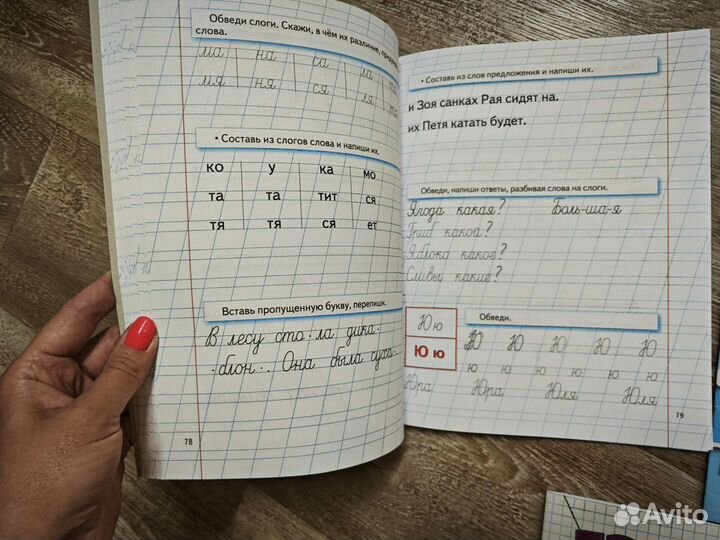 Обведи слоги. Скажи, в чём их различие,
слова.
ма на са
мя ня ся ля
• Составь из слогов слова и напиши их.
ко у ка мо
та та тит ся
тя тя ся ет
Вставь пропущенную букву, перепиши.
В лесу сто·ла дика·
·блон·. Она была суха·
78
• Составь из слов предложения и напиши их.
и Зоя санках Рая сидят на.
их Петя катать будет.
Обведи, напиши ответы, разбивая слова на слоги.
Ягода какая? Боль-ша-я
Гриб какой?
Яблоко какое?
Сливы какие?
Ю ю
Ю ю
Обведи.
Ю Ю Ю Ю Ю
ю ю ю ю ю
Юра Юра Юля Юля
79
Avito